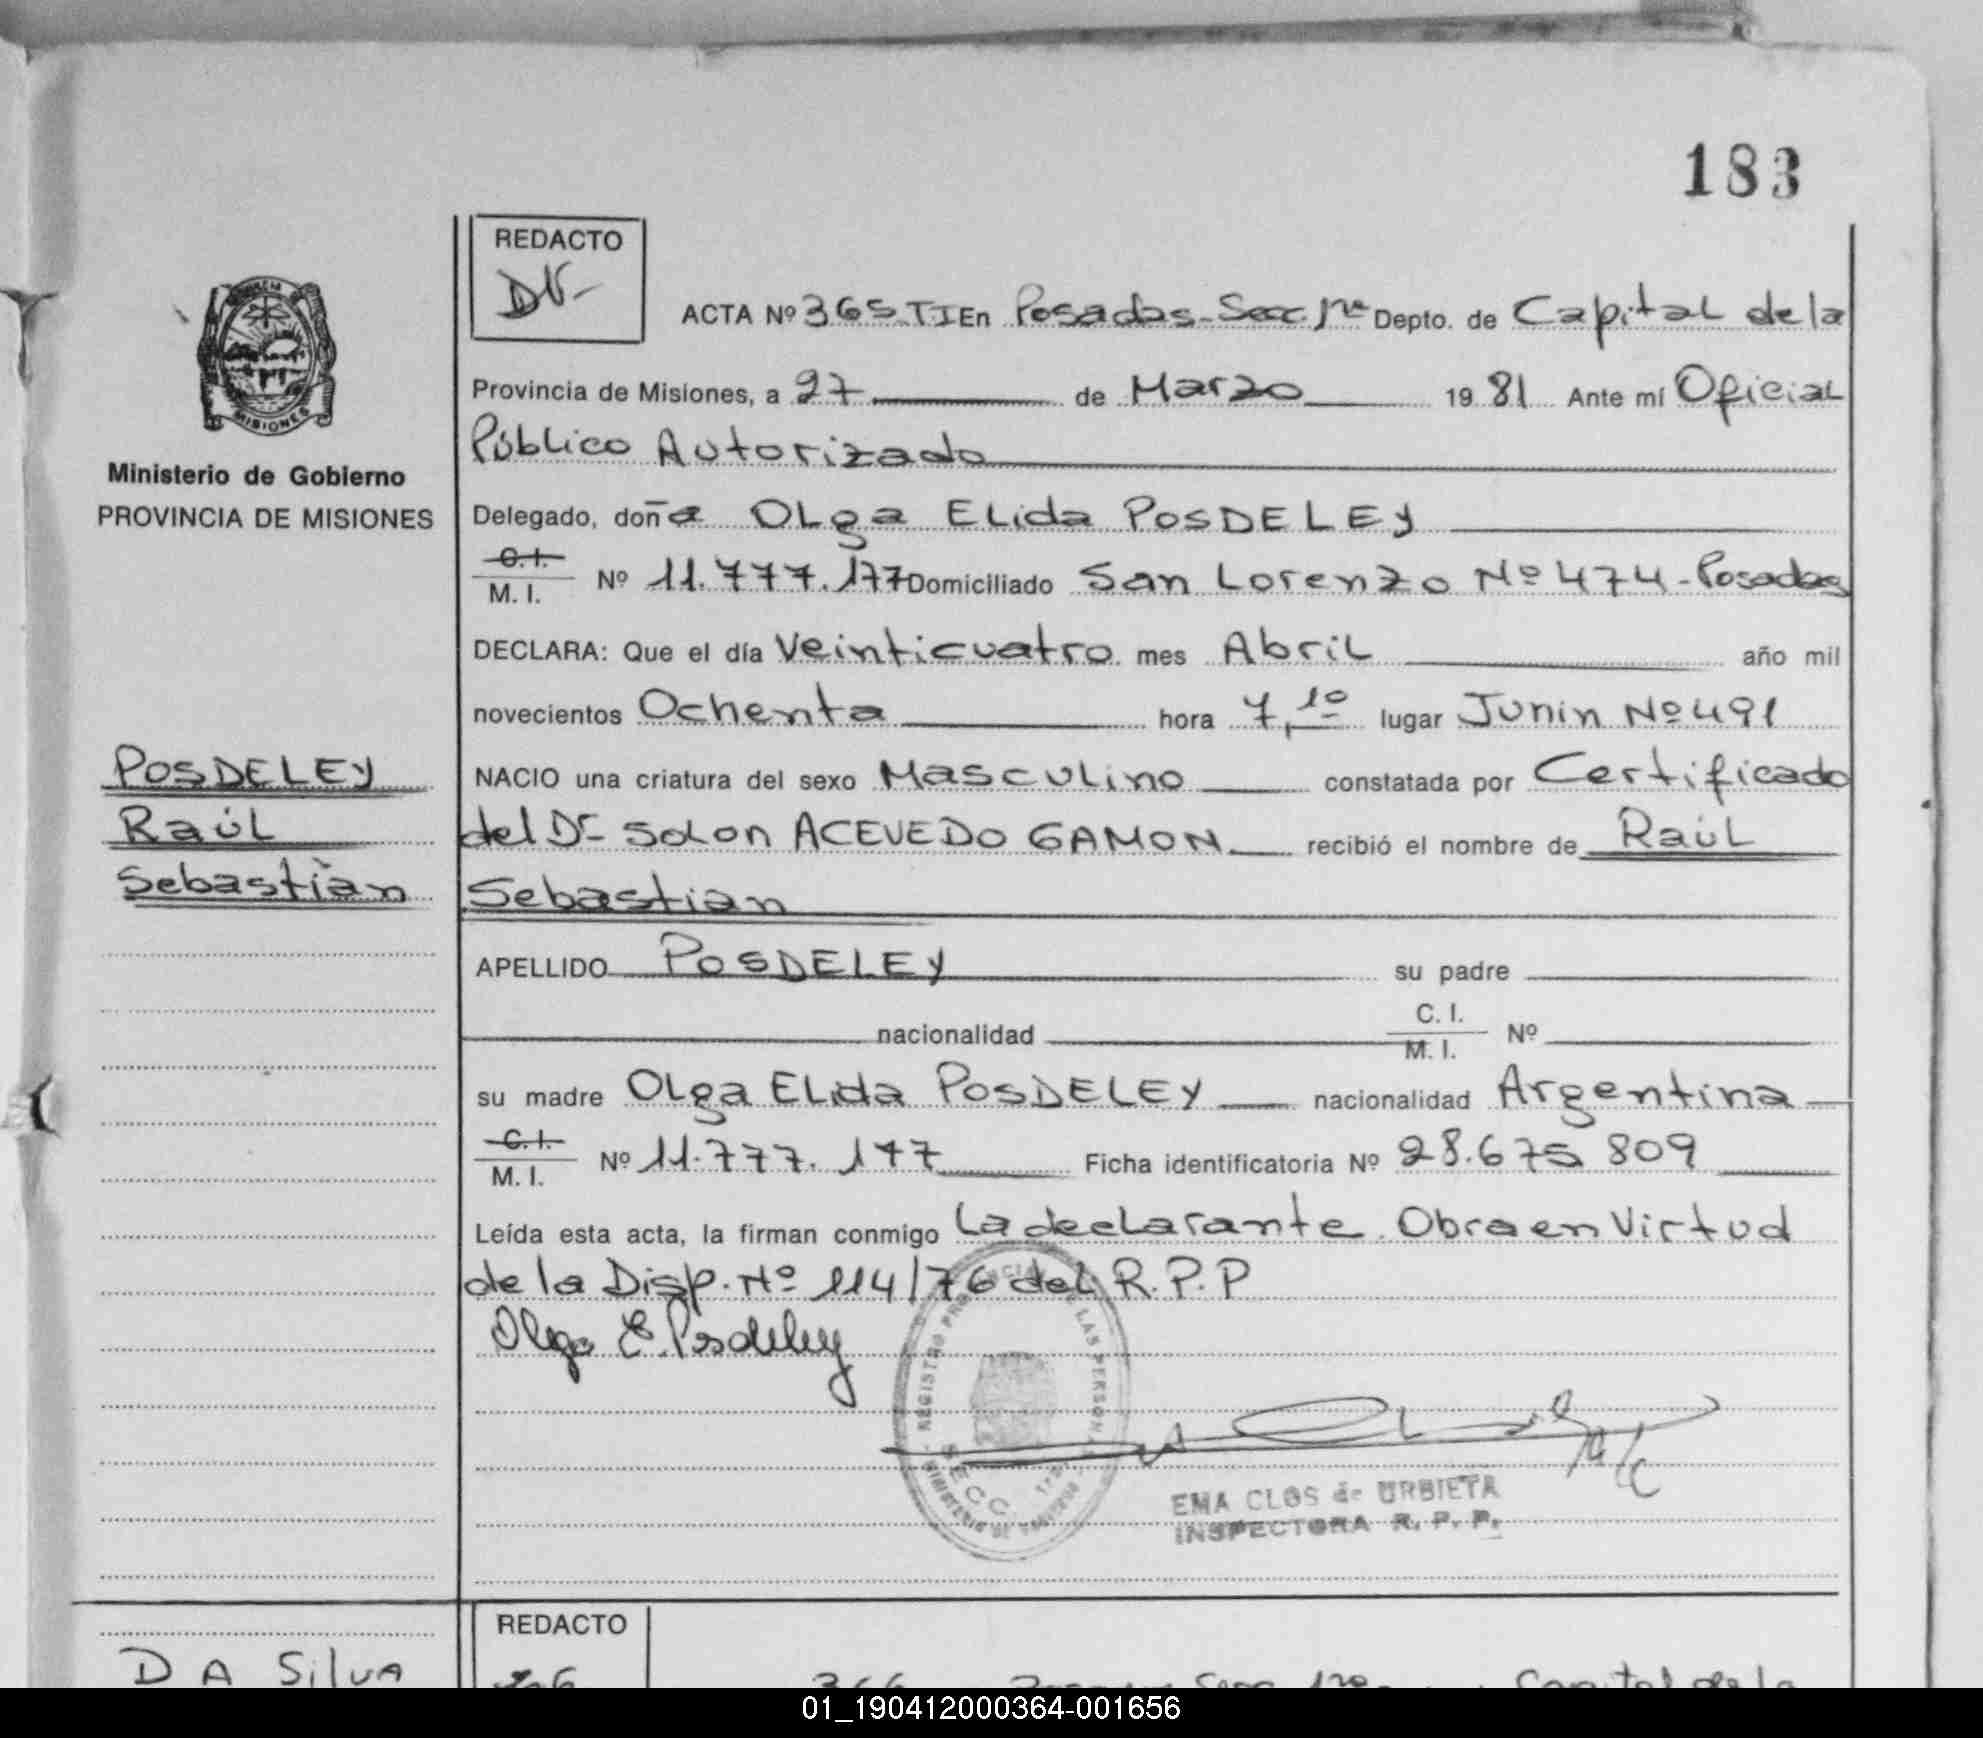 183
REDACTO
DV-
ACTA Nº 365 TI En Posadas - Secc. 1ra Depto. de Capital de la
Provincia de Misiones, a 27 de Marzo 1981 Ante mí Oficial
Público Autorizado
Delegado, doña Olga Elida POSDELEY
C. I.
M. I. Nº 11.777.177 Domiciliado San Lorenzo Nº 474 - Posadas
DECLARA: Que el día Veinticuatro mes Abril año mil
novecientos Ochenta hora 7,10 lugar Junin Nº 491
NACIO una criatura del sexo Masculino constatada por Certificado
del Dr Solon ACEVEDO GAMON recibió el nombre de Raúl
Sebastian
APELLIDO POSDELEY su padre
nacionalidad C. I. M. I. Nº
su madre Olga Elida POSDELEY nacionalidad Argentina
C. I.
M. I. Nº 11.777.177 Ficha identificatoria Nº 28.675 809
Leída esta acta, la firman conmigo La declarante. Obra en Virtud
de la Disp. Nº 114/76 del R.P.P
Olga E. Posdeley
REGISTRO PROVINCIAL DE LAS PERSONAS
SECC. 1ra
EMA CLOS de URBIETA
INSPECTORA R. P. P.
PROVINCIA DE
MISIONES
Ministerio de Gobierno
PROVINCIA DE MISIONES
POSDELEY
Raúl
Sebastián
REDACTO
DA SilvA
366
01_190412000364-001656